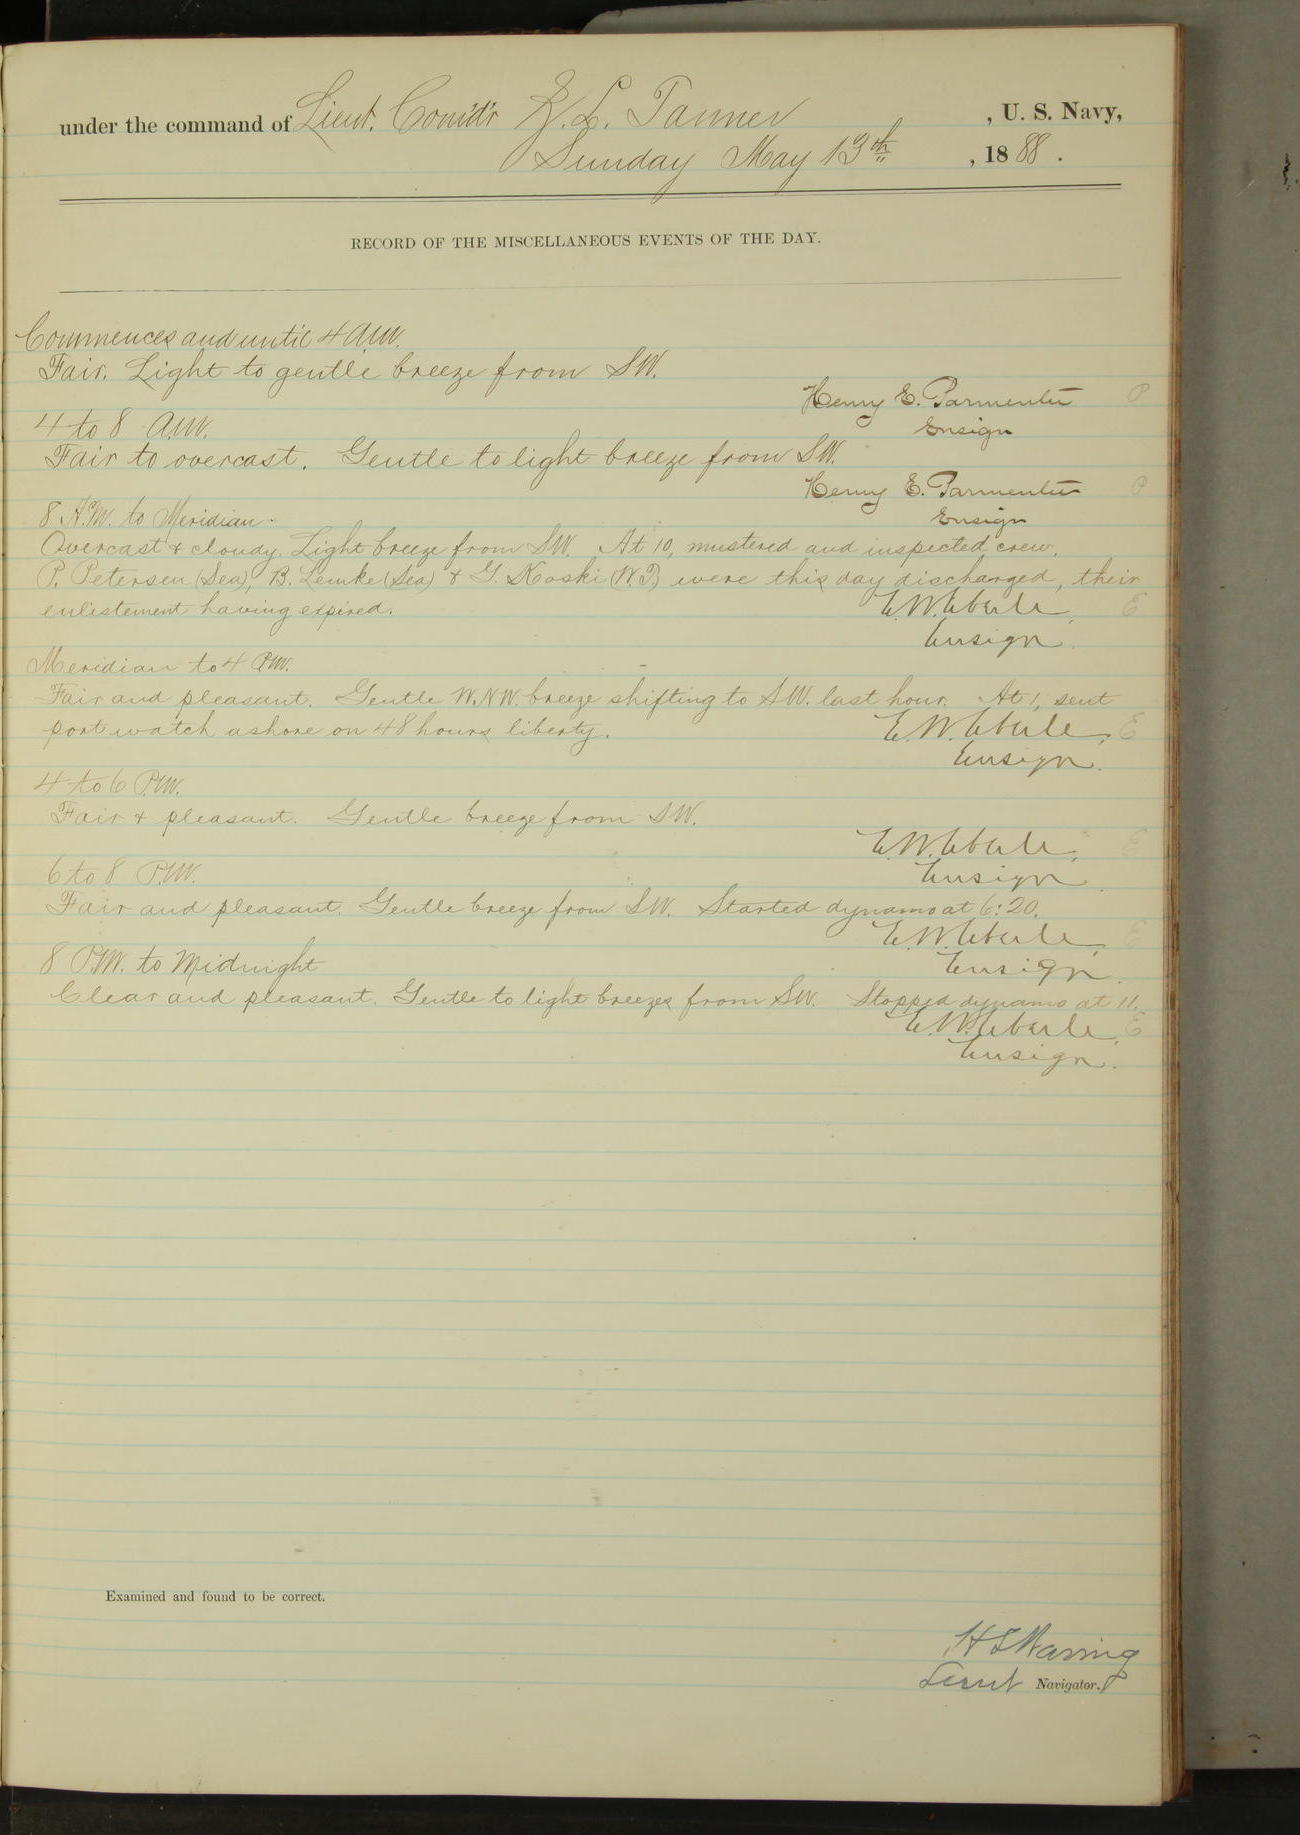 under the command of Lieut. Comd'r Z. L. Tanner , U. S. Navy,
Sunday May 13th , 1888 .
RECORD OF THE MISCELLANEOUS EVENTS OF THE DAY.
Commences and until 4 A.M.
Fair. Light to gentle breeze from SW.
Henry E. Parmenter P
Ensign
4 to 8 A.M.
Fair to overcast. Gentle to light breeze from SW.
Henry E. Parmenter P
Ensign
8 A.M. to Meridian.
Overcast & cloudy. Light breeze from SW. At 10, mustered and inspected crew.
P. Petersen (Sea), B. Lemke (Sea) & G. Koski (W.T.) were this day discharged, their
enlistement having expired. E. W. Eberle, E
Ensign.
Meridian to 4 P.M.
Fair and pleasant. Gentle W.N.W. breeze shifting to SW. last hour. At 1, sent
port watch ashore on 48 hours liberty. E. W. Eberle, E
Ensign.
4 to 6 P.M.
Fair & pleasant. Gentle breeze from SW.
E. W. Eberle, E
Ensign.
6 to 8 P.M.
Fair and pleasant. Gentle breeze from SW. Started dynamo at 6:20.
E. W. Eberle, E
Ensign.
8 P.M. to Midnight
Clear and pleasant. Gentle to light breezes from SW. Stopped dynamo at 11.
E. W. Eberle, E
Ensign.
Examined and found to be correct.
H S Waring
Lieut Navigator.